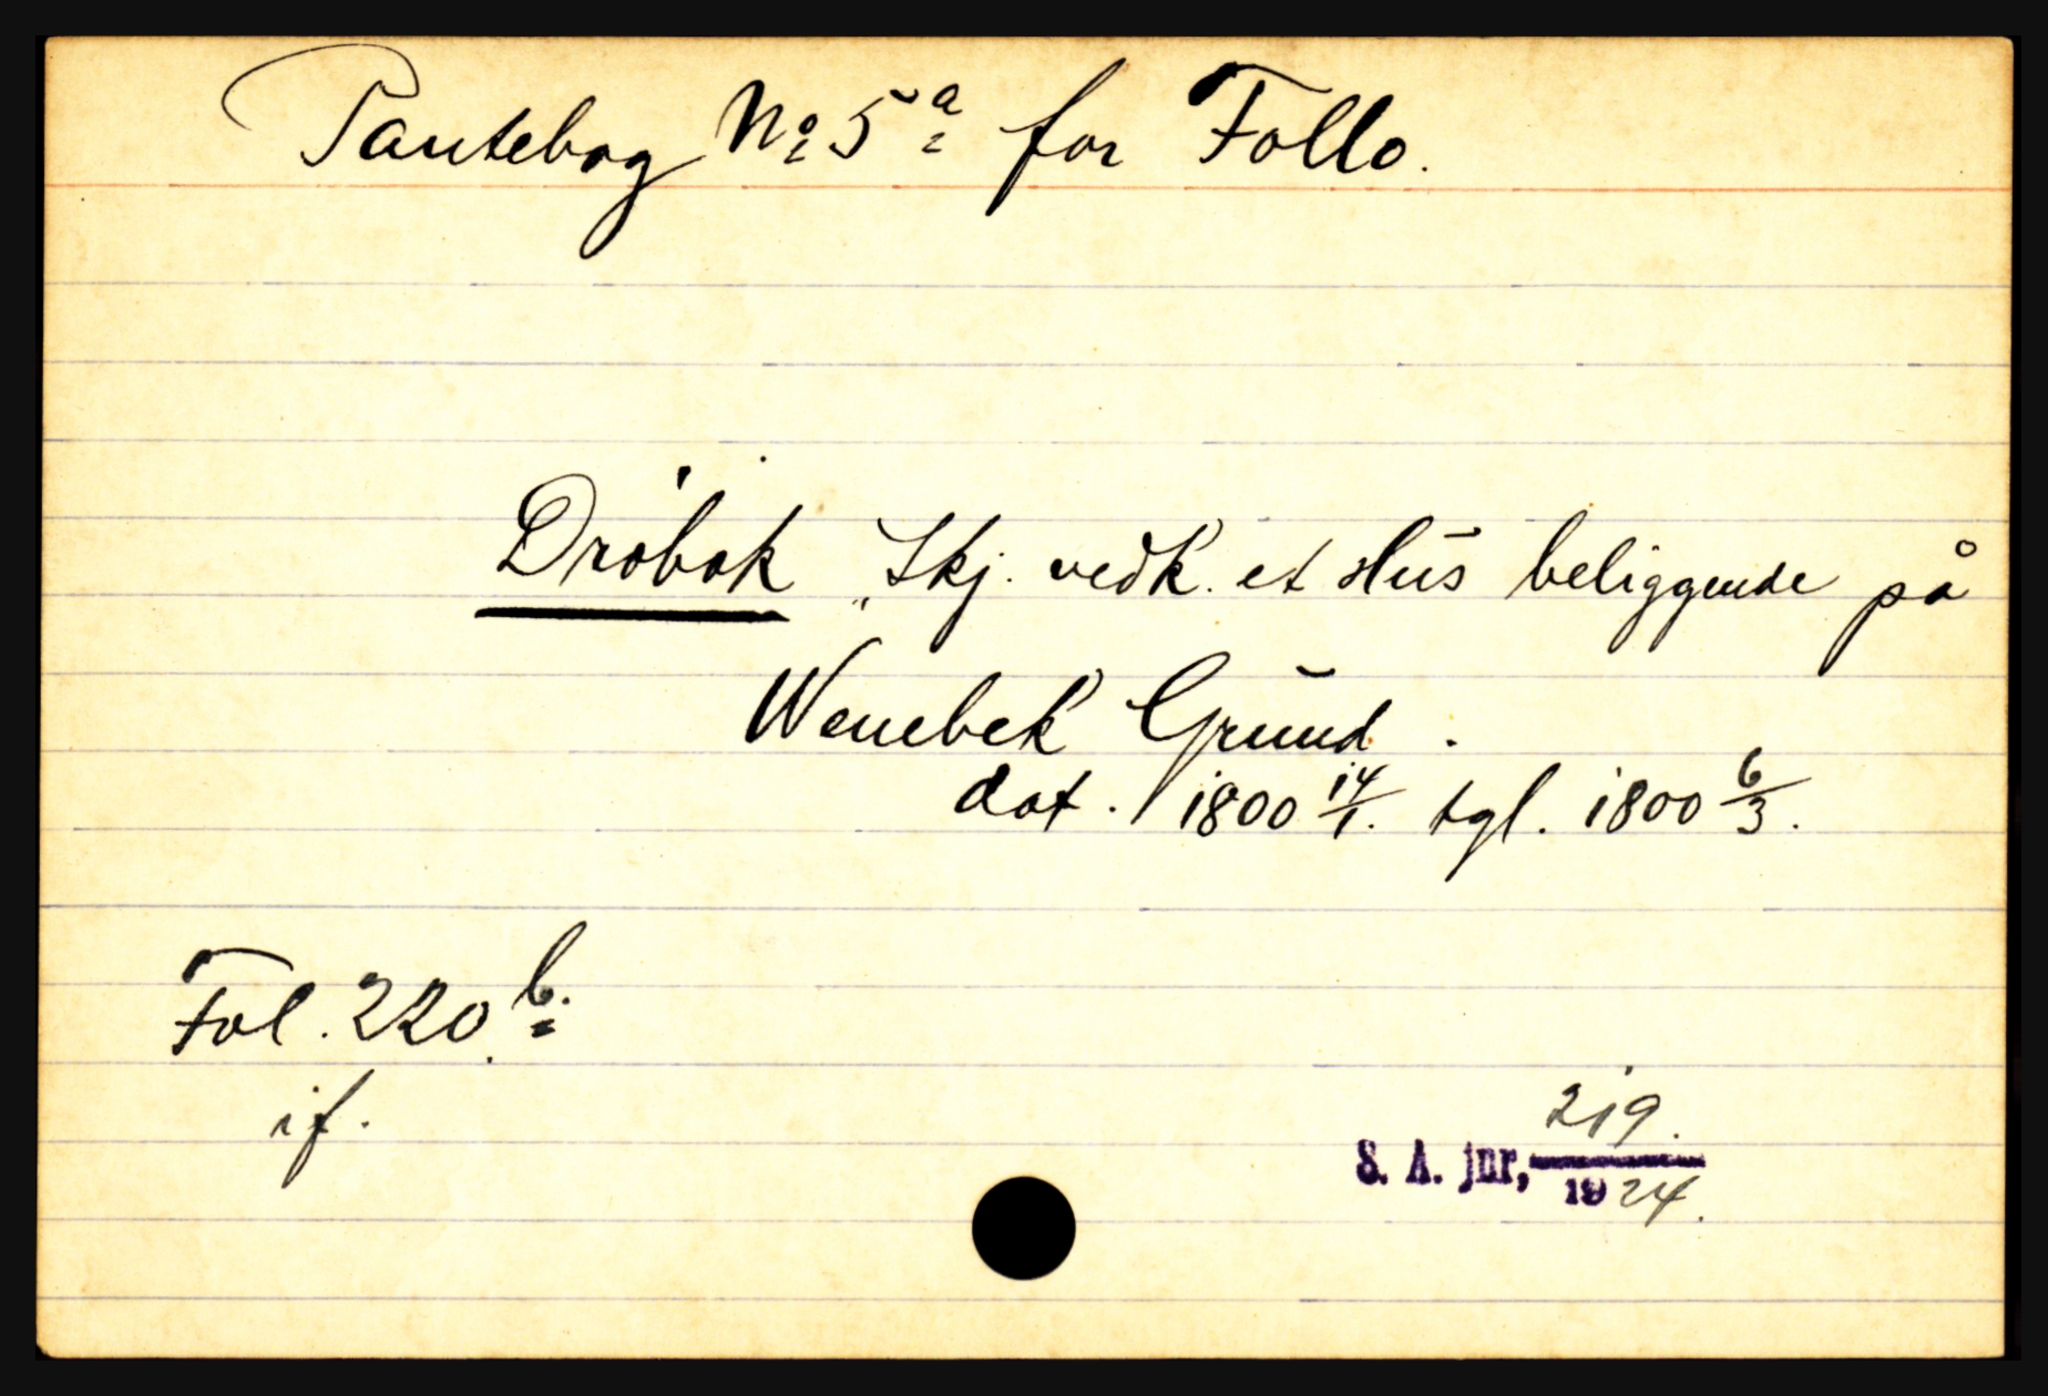 Pantebog No 5 a for Follo.
Dröbak „Skj. vedk. et Hus beliggende på
Wenebek Grund.
dat. 1800 14/1. tgl. 1800 6/3.
Fol. 220 b.
if.
S. A. jnr, 219./1924.